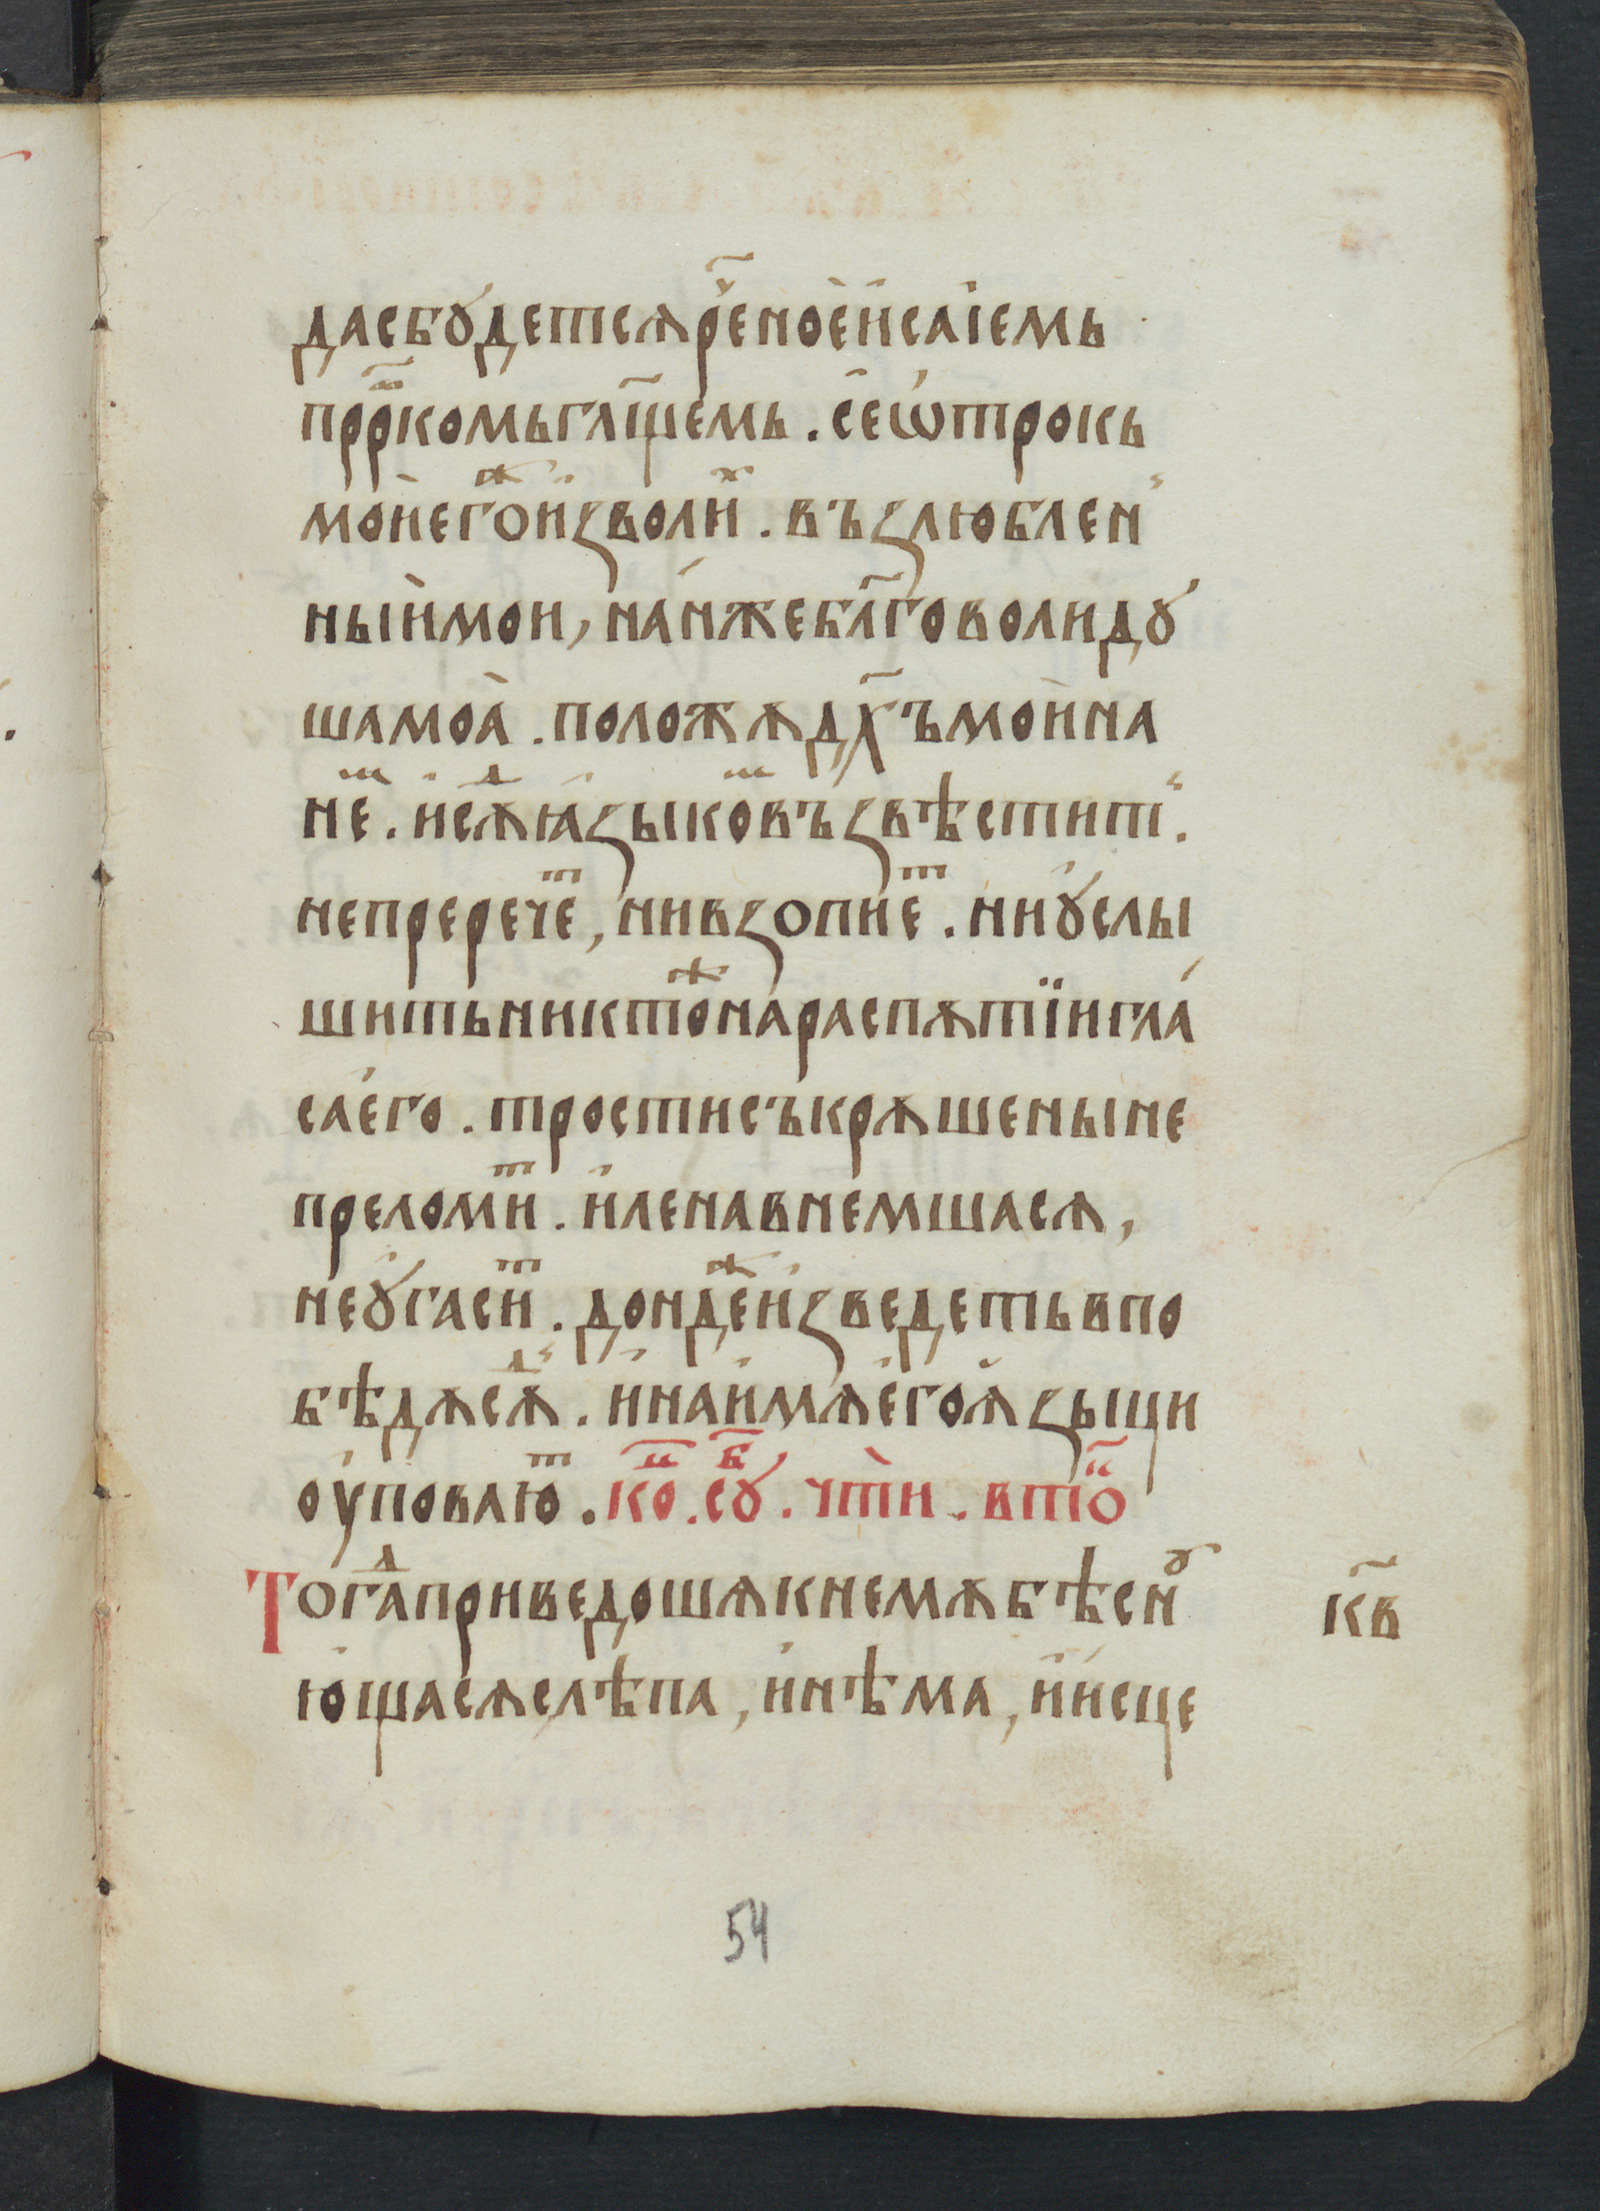 дасбꙋ́детсѧрⷱ҇еноѐи҆саїемь
прⷪ҇ркомьгл҃щемь . сѐѿрокь
мо̀иегоⷤи҆зволи̏ . въꙁлюблен̾
ны̀имои , на́нжебл҃говолидꙋ
шамоа̀ . положѫдх҃ъмо̀ина
неⷨ . и҆сѫⷣꙗ҆ꙁыкоⷨвъꙁвѣстит̾ .
непреречеⷮ , нивꙁопиеⷮ . ниꙋ҆слы
шитьниктоⷤнараспѫтїигла́
саѐго . тростисъкрѫшеныне
преломиⷮ . и҆ленавнемшасѧ ,
неꙋ҆гасиⷮ . дондеⷤи҆ꙁведетьвпо
бѣдѫсѫⷣ . и҆наи҆мѧе҆гоѧ҆ꙁыци
оу҆поваюⷮ . коⷰ҇ . сꙋⷠ҇ . чт̀и . втоⷩ҇
Тогⷣаприведошѧкнемѫбѣснꙋ
ю҆щасѧслѣпа , и҆нѣма , и҆и҆сце
к҃в
54